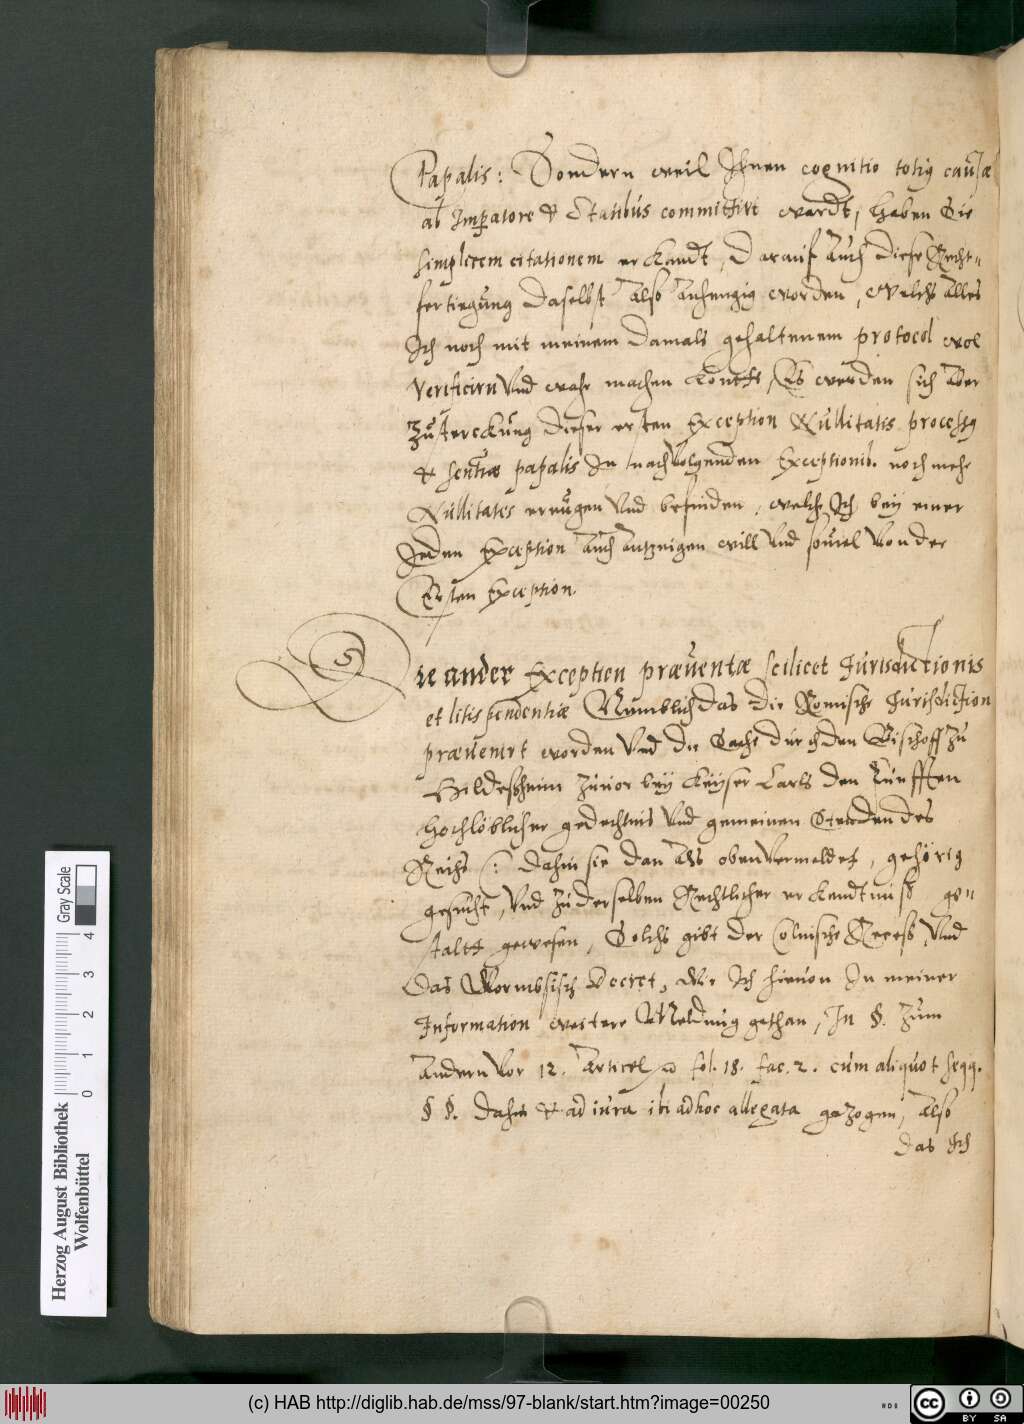 Papalis: Sondern weil Ihnen cognitio totiq causæ
ab Imperatore et Statibus committirt wardt, haben Sie
simplicem citationem erkandt, Darauf Auch diese Recht-
fertiegung daselbst Also Anhengig worden, welchs Alles
Ich noch mit meinem damals gehaltenem protocol wol
verificirn Vnd wahr machen kontt, Es werden sich Aber
Zusterckung dieser ersten Exception Nullitatis processq
et sentiæ papalis In nachvolgenden Exceptionib. noch mehr
Nullitates ereugen Vnd befinden, welche Ich bey einer
Jeden Exception Auch Antzeigen will Vnd souiel Von der
Ersten Exception
Die ander Exception præuentæ scilicet Jurisdictionis
et litis pendentiæ Nemblich das die Romische Jurisdiction
præuenirt worden Vnd die Sache durch den Bischoff zu
Hildesheim zuuor bey Keyser Carls den Funfften
Hochlöblicher gedechtnis Vnd gemeinen Stenden des
Reichs (: dahin sie dan Als oben Vermeldet, gehörig
gesucht, Vnd zu derselben Rechtlicher erkandtniss ge-
staltt gewesen, Solchs gibt der Colnische Recess, Vnd
das Wormbsisch Decret, Wie Ich hieuon In meiner
Information weitere Meldung gethan, In §. Zum
Andern Vor 12. Articel fol. 18. fac. 2. cum aliquot seqq.
§ §. dahin et ad iura ibi adhoc allegata gezogen, Also
das Ich
Herzog August Bibliothek
Wolfenbüttel
0 1 2 3 4
Gray Scale
(c) HAB http://diglib.hab.de/mss/97-blank/start.htm?image=00250
cc BY SA